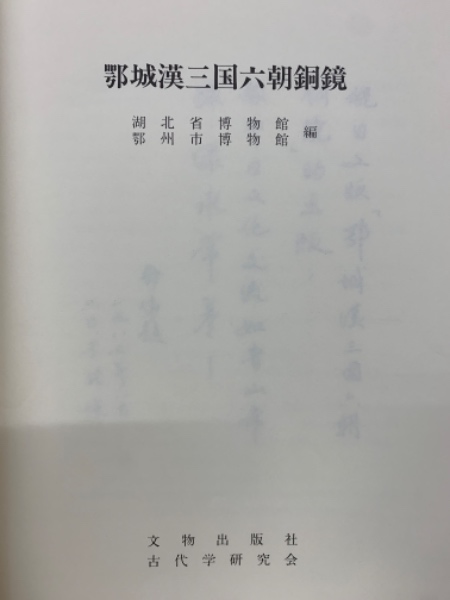 鄂城漢三国六朝銅鏡
湖北省博物館
鄂州市博物館 編
文物出版社
古代学研究会